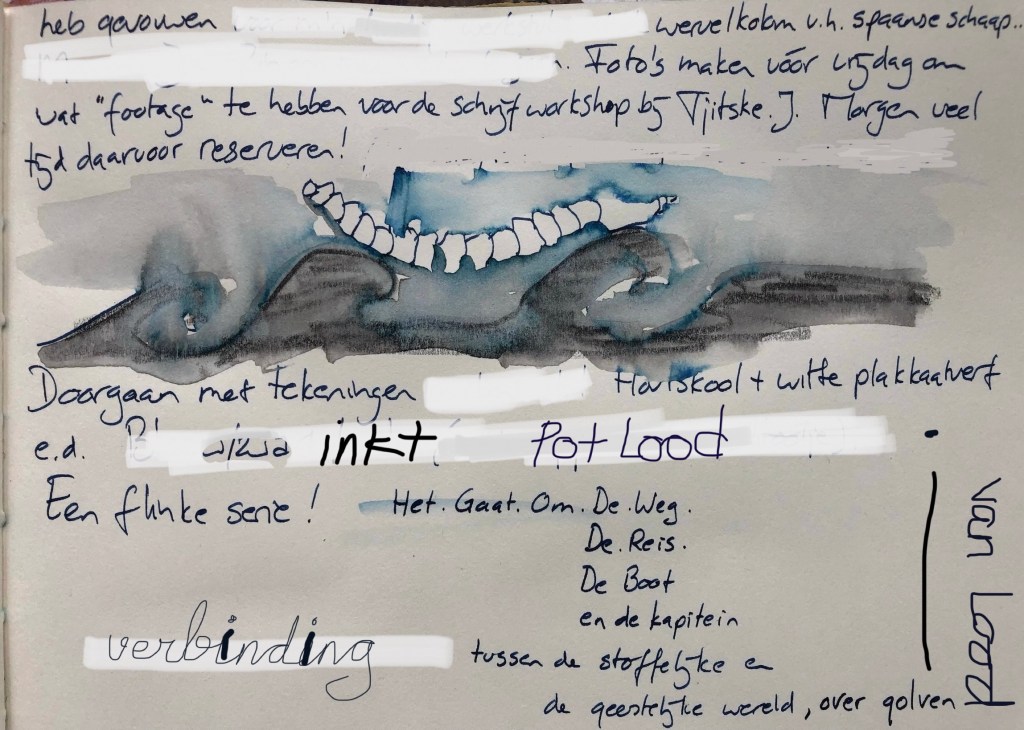 heb gevouwen wervelkolom v.h. spaanse schaap..
. Foto's maken vóór vrijdag om
wat "footage" te hebben voor de schrijfworkshop bij Tjitske. J. Morgen veel
tijd daarvoor reserveren!
Doorgaan met tekeningen Houtskool + witte plakkaatverf
e.d. inkt Pot Lood
Een flinke serie! Het. Gaat. Om. De. Weg.
De. Reis.
De Boot
en de kapitein
verbinding tussen de stoffelijke en
de geestelijke wereld, over golven
van Lood